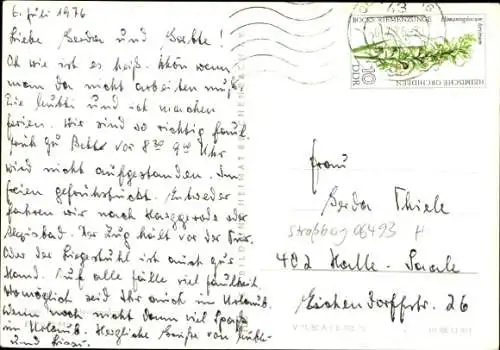 6. Juli 1976
Liebe Gerda und Gatte!
Oh wie ist es heiß. Schön wenn
man da nicht arbeiten muß.
Die Mutti und machen
Ferien. Wir sind so richtig faul.
Früh zu Bette vor 8³⁰ 9⁰⁰ Uhr
wird nicht aufgestanden. Im
freien gefrühstückt. Entweder
fahren wir nach Harzgerode oder
Alexisbad. Der Zug hält vor der Tür.
Oder der Liegestuhl ist auch zur
Hand. Auf alle Fälle viel Faulheit.
Womöglich seid Ihr auch im Urlaub.
Wenn noch nicht dann viel Spaß
im Urlaub. Herzliche Grüße von Mutti
und
BOCKS-RIEMENZUNGE
HEIMISCHE ORCHIDEEN
10
DDR
Frau
Gerda Thiele
Straßbg 06493 H
402 Halle-Saale
Eichendorffstr. 26